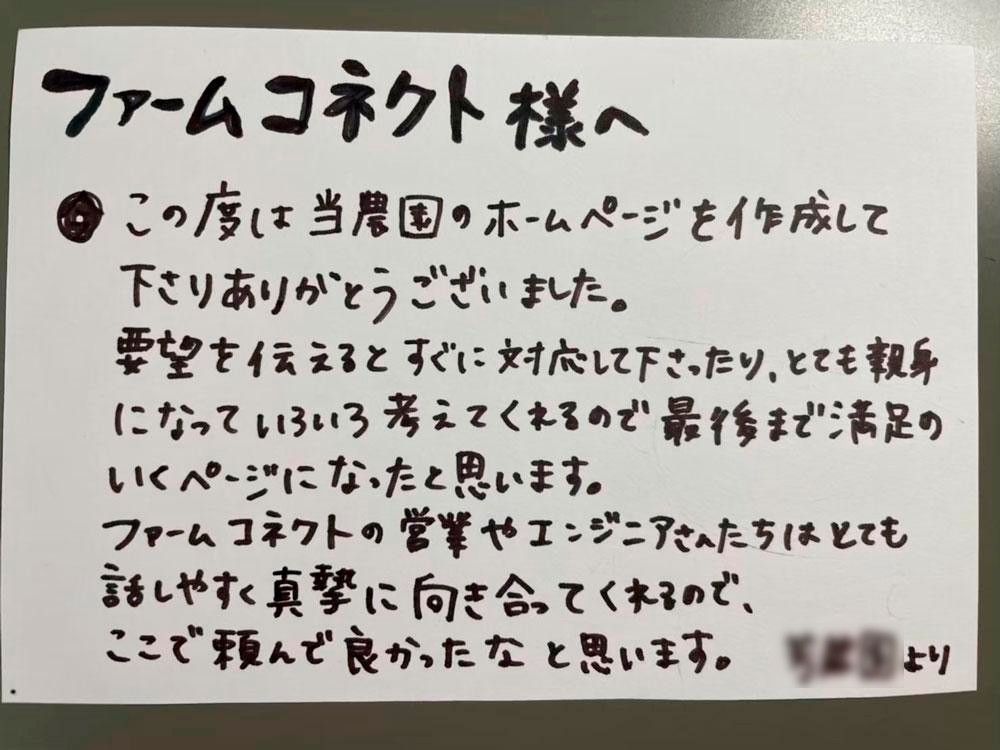 ファームコネクト様へ
この度は当農園のホームページを作成して
下さりありがとうございました。
要望を伝えるとすぐに対応して下さったり、とても親身
になっていろいろ考えてくれるので最後まで満足の
いくページになったと思います。
ファームコネクトの営業やエンジニアさんたちはとても
話しやすく真摯に向き合ってくれるので、
ここで頼んで良かったなと思います。
より